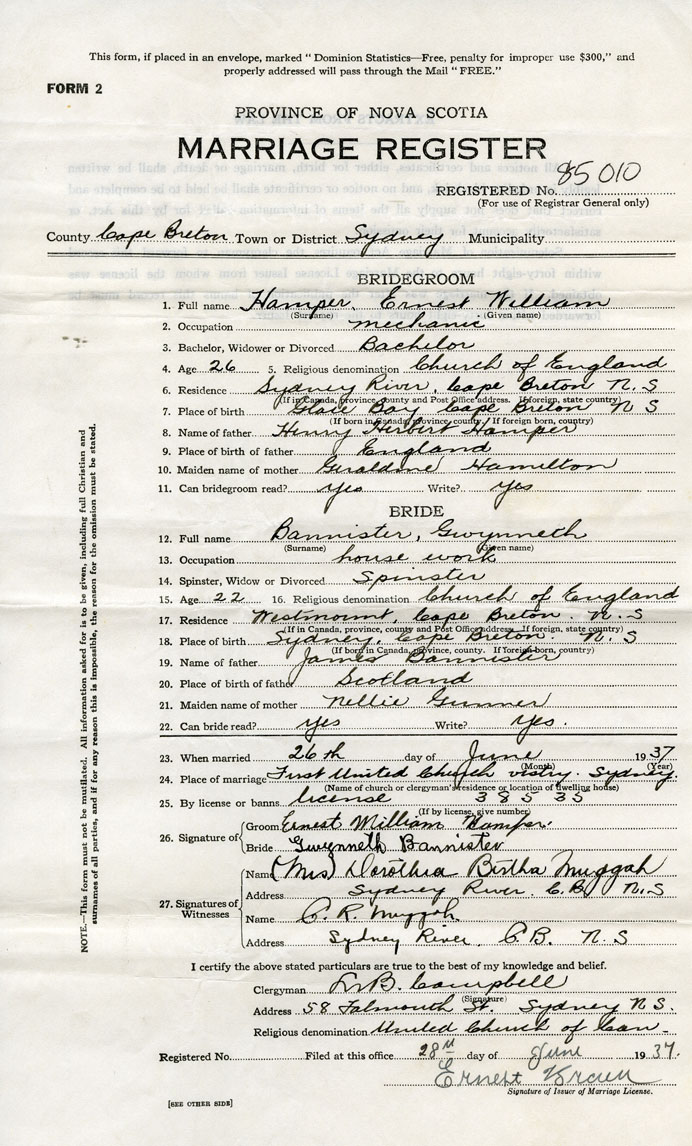 This form, if placed in an envelope, marked "Dominion Statistics—Free, penalty for improper use $300," and
properly addressed will pass through the Mail "FREE."
FORM 2
PROVINCE OF NOVA SCOTIA
MARRIAGE REGISTER
REGISTERED No. 85010
(For use of Registrar General only)
County Cape Breton Town or District Sydney Municipality
BRIDEGROOM
1. Full name Hamper, Ernest William
(Surname) (Given name)
2. Occupation mechanic
3. Bachelor, Widower or Divorced Bachelor
4. Age 26 5. Religious denomination Church of England
6. Residence Sydney River, Cape Breton N.S
(If in Canada, province, county and Post Office address. If foreign, state country)
7. Place of birth Glace Bay Cape Breton N S
(If born in Canada, province, county. If foreign born, country)
8. Name of father Henry Herbert Hamper
9. Place of birth of father England
10. Maiden name of mother Geraldine Hamilton
11. Can bridegroom read? yes Write? yes
BRIDE
12. Full name Bannister, Gwynneth
(Surname) (Given name)
13. Occupation house work
14. Spinster, Widow or Divorced Spinster
15. Age 22 16. Religious denomination Church of England
17. Residence Westmount, Cape Breton. N.S
(If in Canada, province, county and Post Office address. If foreign, state country)
18. Place of birth Sydney, Cape Breton N.S
(If born in Canada, province, county. If foreign born, country)
19. Name of father James Bannister
20. Place of birth of father Scotland
21. Maiden name of mother Nellie Gunner
22. Can bride read? yes Write? yes.
23. When married 26th day of June 1937
(Month) (Year)
24. Place of marriage First United Church vestry. Sydney.
(Name of church or clergyman's residence or location of dwelling house)
25. By license or banns license 38535
(If by license, give number)
26. Signature of Groom Ernest William Hamper.
Bride Gwynneth Bannister
27. Signatures of Witnesses
Name (Mrs) Dorothea Birtha Muggah
Address Sydney River. C.B. N.S
Name C. R. Muggah
Address Sydney River, C.B. N.S
I certify the above stated particulars are true to the best of my knowledge and belief.
Clergyman Campbell
(Signature)
Address 58 Falmouth St. Sydney N S.
Religious denomination United Church of Can-
Registered No. Filed at this office 28th day of June 1937.
Ernest
Signature of Issuer of Marriage License.
[SEE OTHER SIDE]
NOTE.—This form must not be mutilated. All information asked for is to be given, including full Christian and
surnames of all parties, and if for any reason this is impossible, the reason for the omission must be stated.